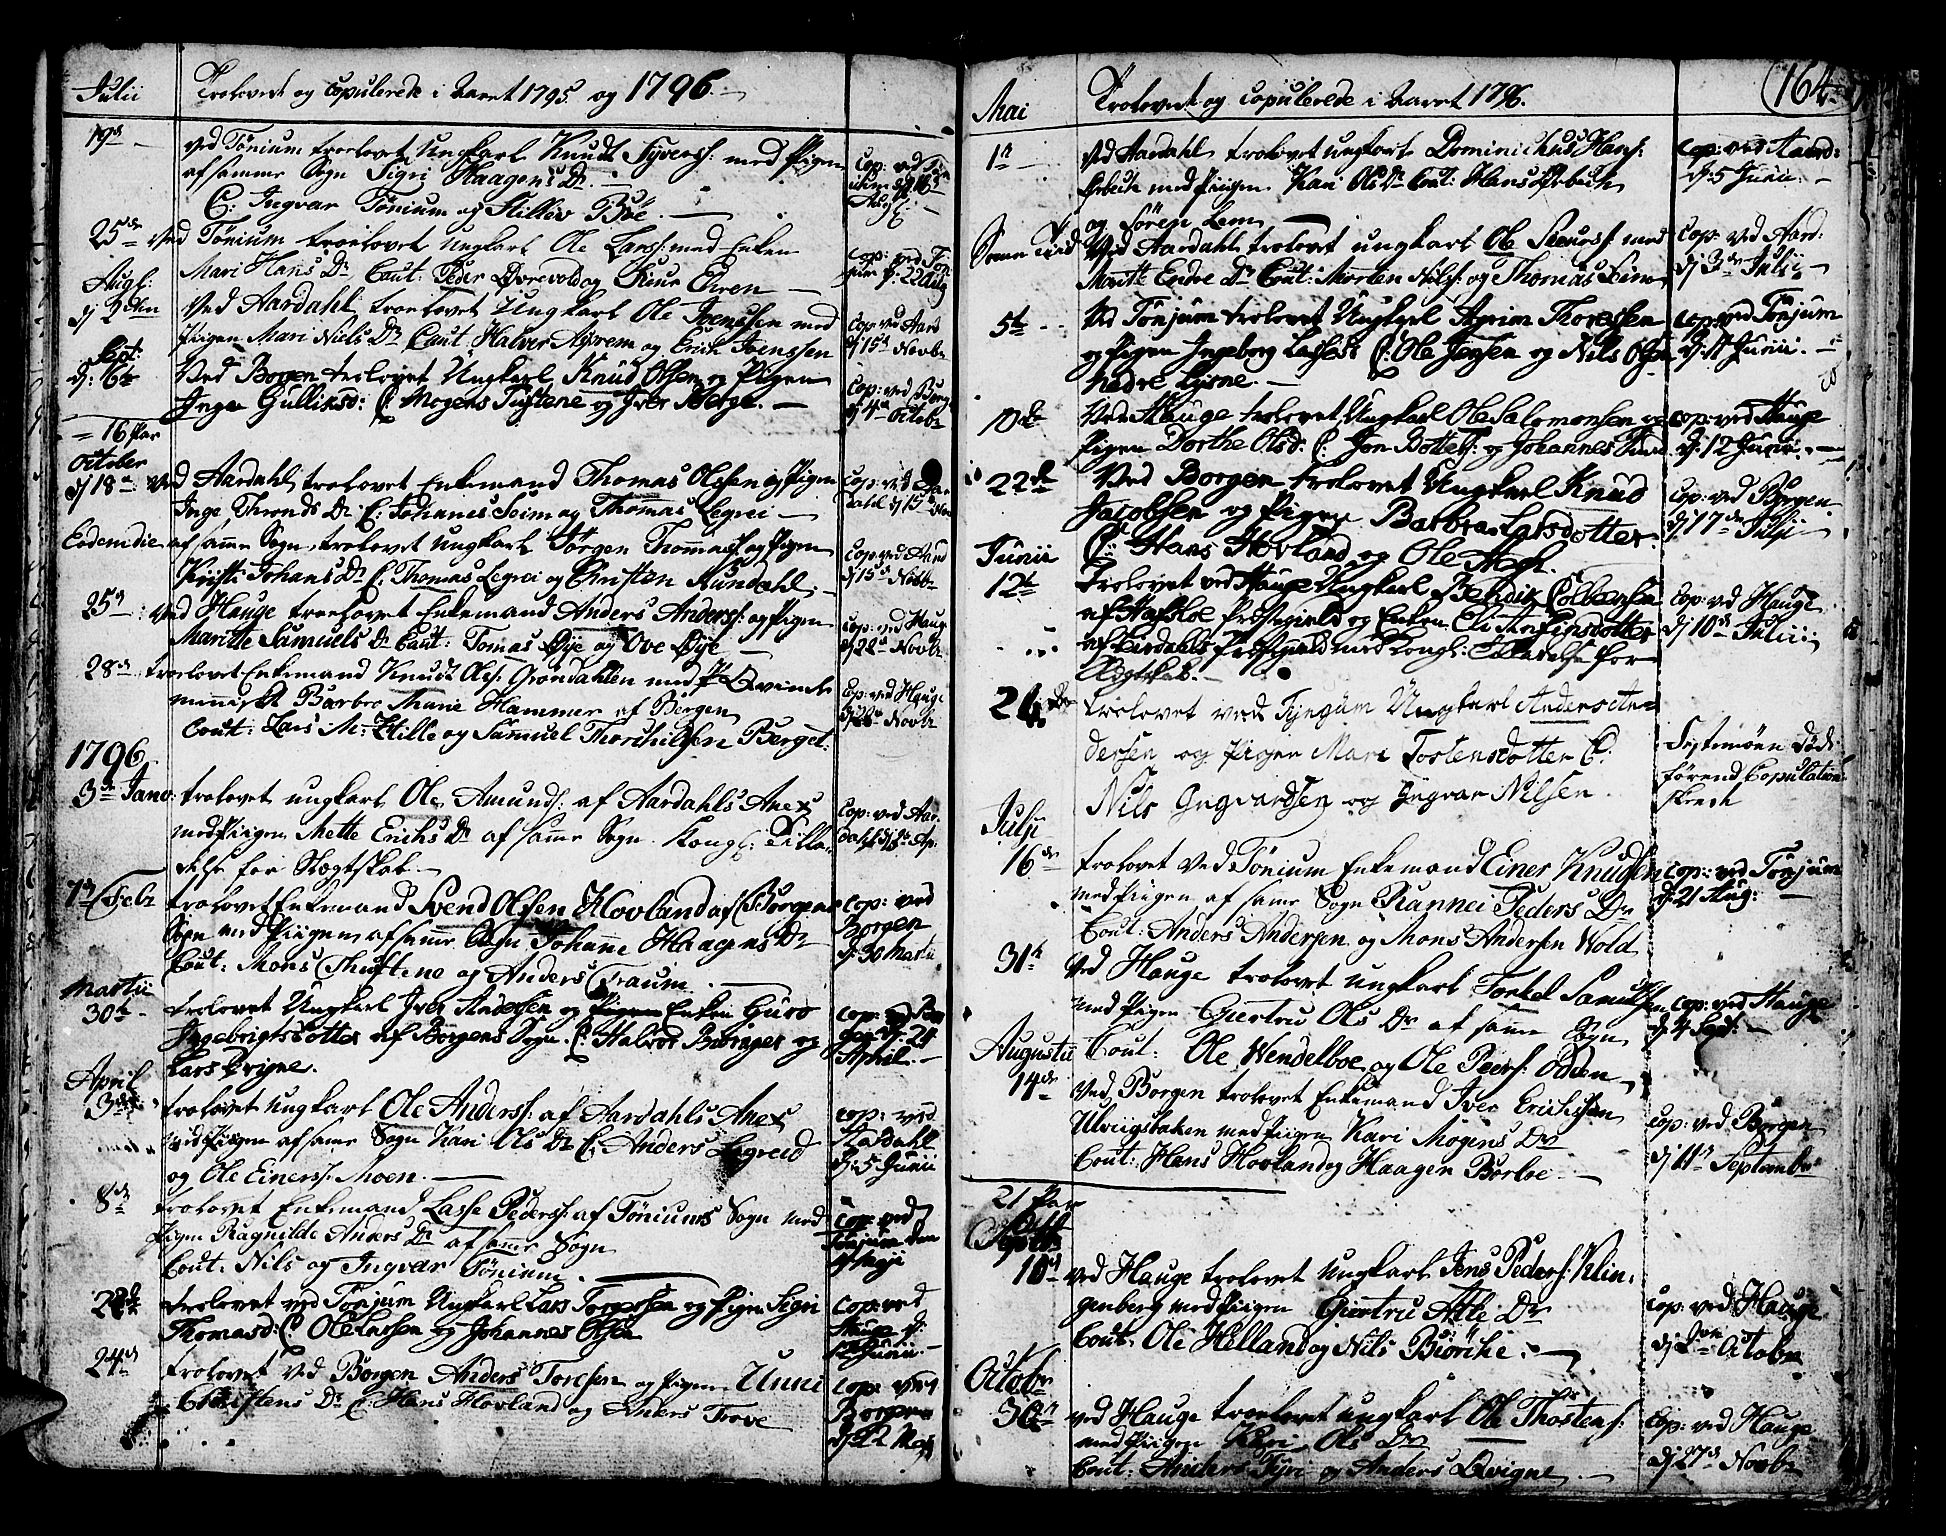 Julii
Trolovede og Copulerede i Aaret 1795. og 1796.
19de
ved Tønium trolovet Ungkarl Knudt Siversf: med Pigen
af samme Sogn Sigri Haagens Dr.
C: Ingvar Tønium og Stillev Böe.
25de ved Tønium troelovet Ungkarl Ole Larsf: med Enken
Mari Hans Dr Caut: Peder Qvevold og Siur Eren
Cop: ved Tønjum d: 22 Aug
Augt:
d 2den
ved Aardahl troelovet Ungkarl Ole Jvenssen med
Pigen Mari Niels Dr Caut: Halver Afvrem og Erich Jvenssen
cop: ved Aard
d 15 Novbr
Sept:
d: 16de
Ved Borgen trolovet Ungkarl Knud Olsen og Pigen
Inger Gulliksd: C: Mogens Tuftene og Iver Berge.
cop: ved Borg
d 4de Octobr
= 16 Par
October
d 18de ved Aardahl trolovet Enkemand Thomas Olssen og Pigen
Inge Thronds Dr C: Johannes Seim og Thomas Legrei
Cop: ved Aardahl d 15 Nov
Eodem die af samme Sogn, trolovet Ungkarl Jørgen Thommasf: og Pigen
Kristi Johans Dr C: Thomas Legrei og Christen Nundahl
Cop: ved Aard
d 15 Novbr
25de ved Hauge troelovet Enkemand Anders Andersf: og Pigen
Maritte Samuels Dr Caut: Tomas Øye og Ove Øye
cop: ved Haug
d 22 Novbr
28de trolovet Enkemand Knudt Olsf: Grøndahlen med Qvinde
mennisk Barbro Marie Hammer af Bergen
Caut: Lars M: Hille og Samuel Thorchilsen Berget.
Cop: ved Hauge
Novbr
1796
3de Janv: trolovet Ungkarl Ole Amundsf: af Aardahls Anex
med Pigen Mette Erichs Dr af samme Sogn. Kongl: Tilla-
delse for Slegtskab.
Cop: ved Aar-
dahl
7de Febr
trolovet Enkemand Svend Olssen Hovland af Borgens
Sogn med Pigen af samme Sogn Johanne Haagens Dr
Caut: Mons Thuftene og Anders Traum
Cop: ved
Borgen
d: 30 Martii
Martii
30te
trolovet Ungkarl Iver Andersen og Pigen Enken Guro
Ingebrigtsdotter af Borgens Sogn. C: Halvor Biörager og
Lars Drigne.
Cop: ved Bor-
gen d: 24
April.
April
3de
trolovet Ungkarl Ole Andersf: af Aardahls Anex
med Pigen af samme Sogn Kari Ols Dr C: Anders Legreid
og Ole Einersf: Moen.
Cop: ved
Aardahl
d: 5 Junii
8de
trolovet Enkemand Lasse Pedersf: af Tøniums Sogn med
Pigen Ragnilde Anders Dr af samme Sogn
Caut: Nils og Ingvar Tønium
Cop: ved
Tønjum
trolovet ved Tønjum Ungkarl Lars Torgersen og Pigen Sigri
Thomasd: C: Ole Lassen og Johannes Olsen
Cop: ved
Hauge d:
12 Junii
24de
trolovet ved Borgen Anders Toresen og Pigen Unni
Christens Dr C: Hans Hovland og Anders Trove
Cop: ved
Borgen
d 22 Maj
Mai
Trolovede og Copulerede i Aaret 1796.
164
1te
Ved Aardahl trolovet Ungkarl Dominichus Hansf:
Ørbech med Pigen Kari Ols Dr Caut: Hans Ørbech
og Sören Lem
cop: ved Aard:
d: 5 Junii.
Samme Tiid Ved Aardahl trolovet Ungkarl Ole Siursf: med
Maritte Endre Dr Caut: Morten Nilsf: og Thomas Seim
Cop: ved Aard:
d 3de Julii
5te
Ved Tønjum trolovet Ungkarl Asgrim Thoresen
og Pigen Ingeborg Lassesd: C: Ole Jensen og Nils Olsen
nedre Lysne.
cop: ved Tønjum
d: 17 Junii.
10de
Ved Hauge trolovet Ungkarl Ole Salomonsen og
Pigen Dorthe Olsd: C: Jon Bottelsf: og Johannes
cop: ved Hauge
d: 12 Junii.
22de
Ved Borgen trolovet Ungkarl Knud
Jacobsen og Pigen Barbra Larsdotter
C: Hans Hovland og Ole
Cop: ved Borgen
d 17de Julii
Junii
12te
trolovet ved Hauge Ungkarl Bendix Colbensen
af Hafsloe Præstegield og Enken Eli Mortensdotter
af Leirdahls Præstegield med Kongl: Tilladelse for
Slægtskab.
Cop: ved Hauge
d 10de Julii
trolovet ved Tønjum Ungkarl Anders An-
dersen og Pigen Mari Tostensdotter C:
Nils Ingvardsen og Ingvar Nilsen.
Festemøen døde
førend Copulation
skeede
Julii
16de
trolovet ved Tønium Enkemand Einer Knudsen
med Pigen af samme Sogn Rannei Peders Dr
Caut: Anders Andersen og Mons Andersen Wold
cop: ved Tønjum
d: 21 Aug:
31te
ved Hauge trolovet Ungkarl Torkel Samuelsen
med Pigen Giertru Ols Dr af samme Sogn
Caut: Ole Wendelboe og Ole Peersf: Odden
cop: ved Hauge
d: 4 Sept:
Augustii
14de
ved Borgen trolovet Enkemand Iver Erichssen
Ulvigsbaken med Pigen Kari Mogens Dr
Caut: Hans Hovland og Haagen Borloe
cop: ved Borgen
d 11te Septembr
21 Par
Septbr
10de ved Hauge trolovet Ungkarl Jens Pedersf: Klin-
genberg med Pigen Giertru Atle Dr
Caut: Ole Helland og Nils Biörche.
cop: ved Hauge
d 2den Octobr
Octobr
30te ved Hauge troelovet Ungkarl Ole Thostensf:
med Pigen Kari Ols Dr
Caut: Anders Tyri og Anders Qvigne
cop: ved Hauge
d 27de Novbr